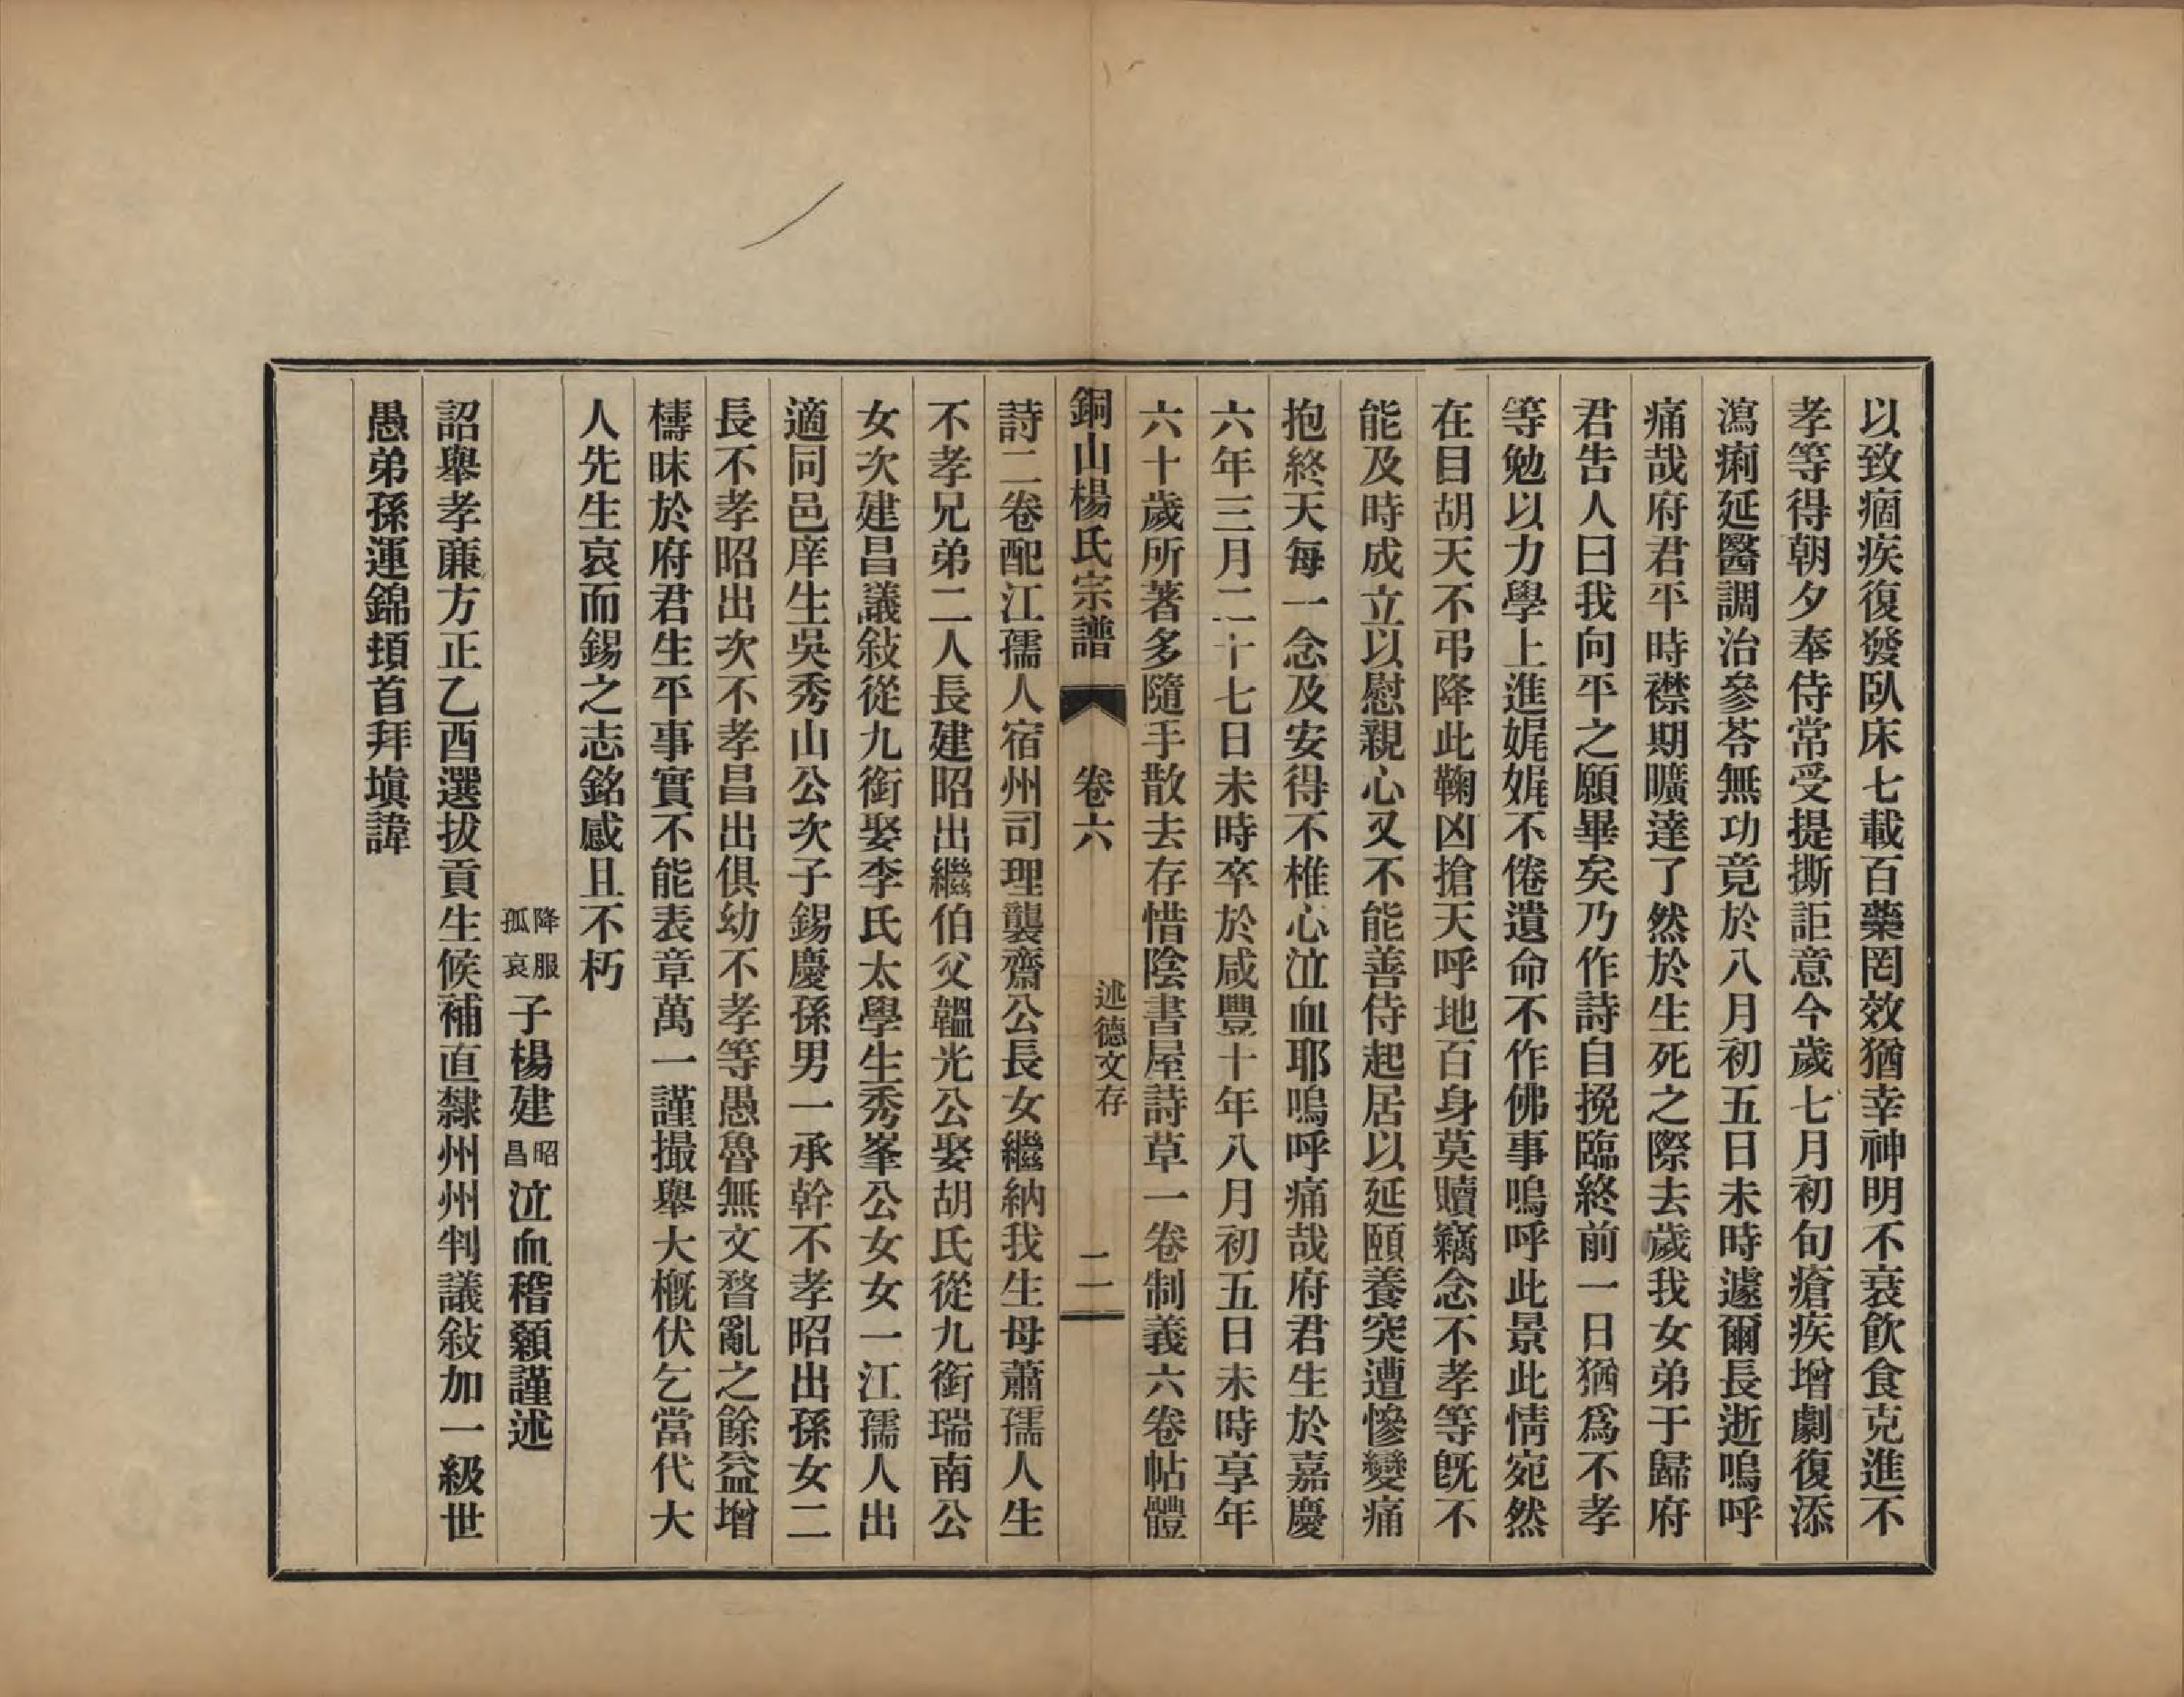 以致痼疾復發臥床七載百藥罔效猶幸神明不衰飲食克進不
孝等得朝夕奉侍常受提撕詎意今歲七月初旬瘡疾增劇復添
瀉痢延醫調治參苓無功竟於八月初五日未時遽爾長逝嗚呼
痛哉府君平時襟期曠達了然於生死之際去歲我女弟于歸府
君告人曰我向平之願畢矣乃作詩自挽臨終前一日猶爲不孝
等勉以力學上進娓娓不倦遺命不作佛事嗚呼此景此情宛然
在目胡天不弔降此鞠凶搶天呼地百身莫贖竊念不孝等旣不
能及時成立以慰親心又不能善侍起居以延頤養突遭慘變痛
抱終天每一念及安得不椎心泣血耶嗚呼痛哉府君生於嘉慶
六年三月二十七日未時卒於咸豐十年八月初五日未時享年
六十歲所著多隨手散去存惜陰書屋詩草一卷制義六卷帖體
銅山楊氏宗譜 卷六 述德文存 二
詩二卷配江孺人宿州司理襲齋公長女繼納我生母蕭孺人生
不孝兄弟二人長建昭出繼伯父韞光公娶胡氏從九銜瑞南公
女次建昌議敍從九銜娶李氏太學生秀峯公女女一江孺人出
適同邑庠生吳秀山公次子錫慶孫男一承幹不孝昭出孫女二
長不孝昭出次不孝昌出俱幼不孝等愚魯無文瞀亂之餘益增
檮昧於府君生平事實不能表章萬一謹撮舉大槪伏乞當代大
人先生哀而錫之志銘感且不朽
降服孤哀子楊建昭昌泣血稽顙謹述
詔舉孝廉方正乙酉選拔貢生候補直隸州州判議敍加一級世
愚弟孫運錦頓首拜塡諱